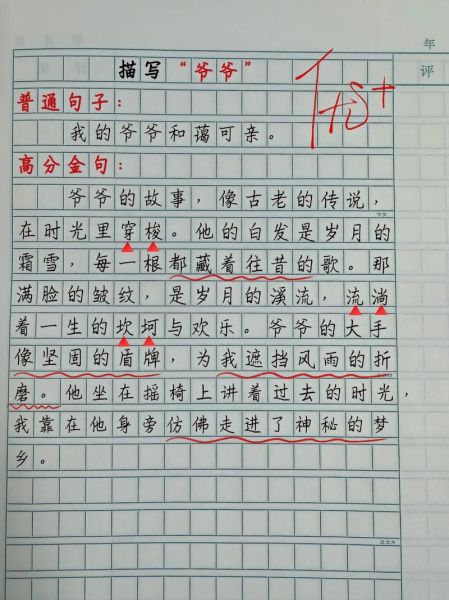 年
评
描写“爷爷”
优+
普通句子：
我的爷爷和蔼可亲。
高分金句：
爷爷的故事，像古老的传说，
75
在时光里穿梭。他的白发是岁月的
霜雪，每一根都藏着往昔的歌。那
满脸的皱纹，是岁月的溪流，流淌
着一生的坎坷与欢乐。爷爷的大手
像坚固的盾牌，为我遮挡风雨的折
磨。他坐在摇椅上讲着过去的时光，
我靠在他身旁仿佛走进了神秘的梦
乡。
225